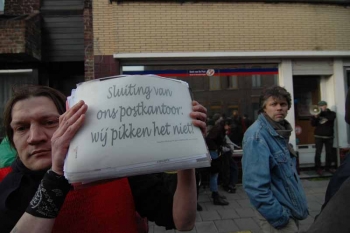 Sluiting van
ons postkantoor:
wij pikken het niet!